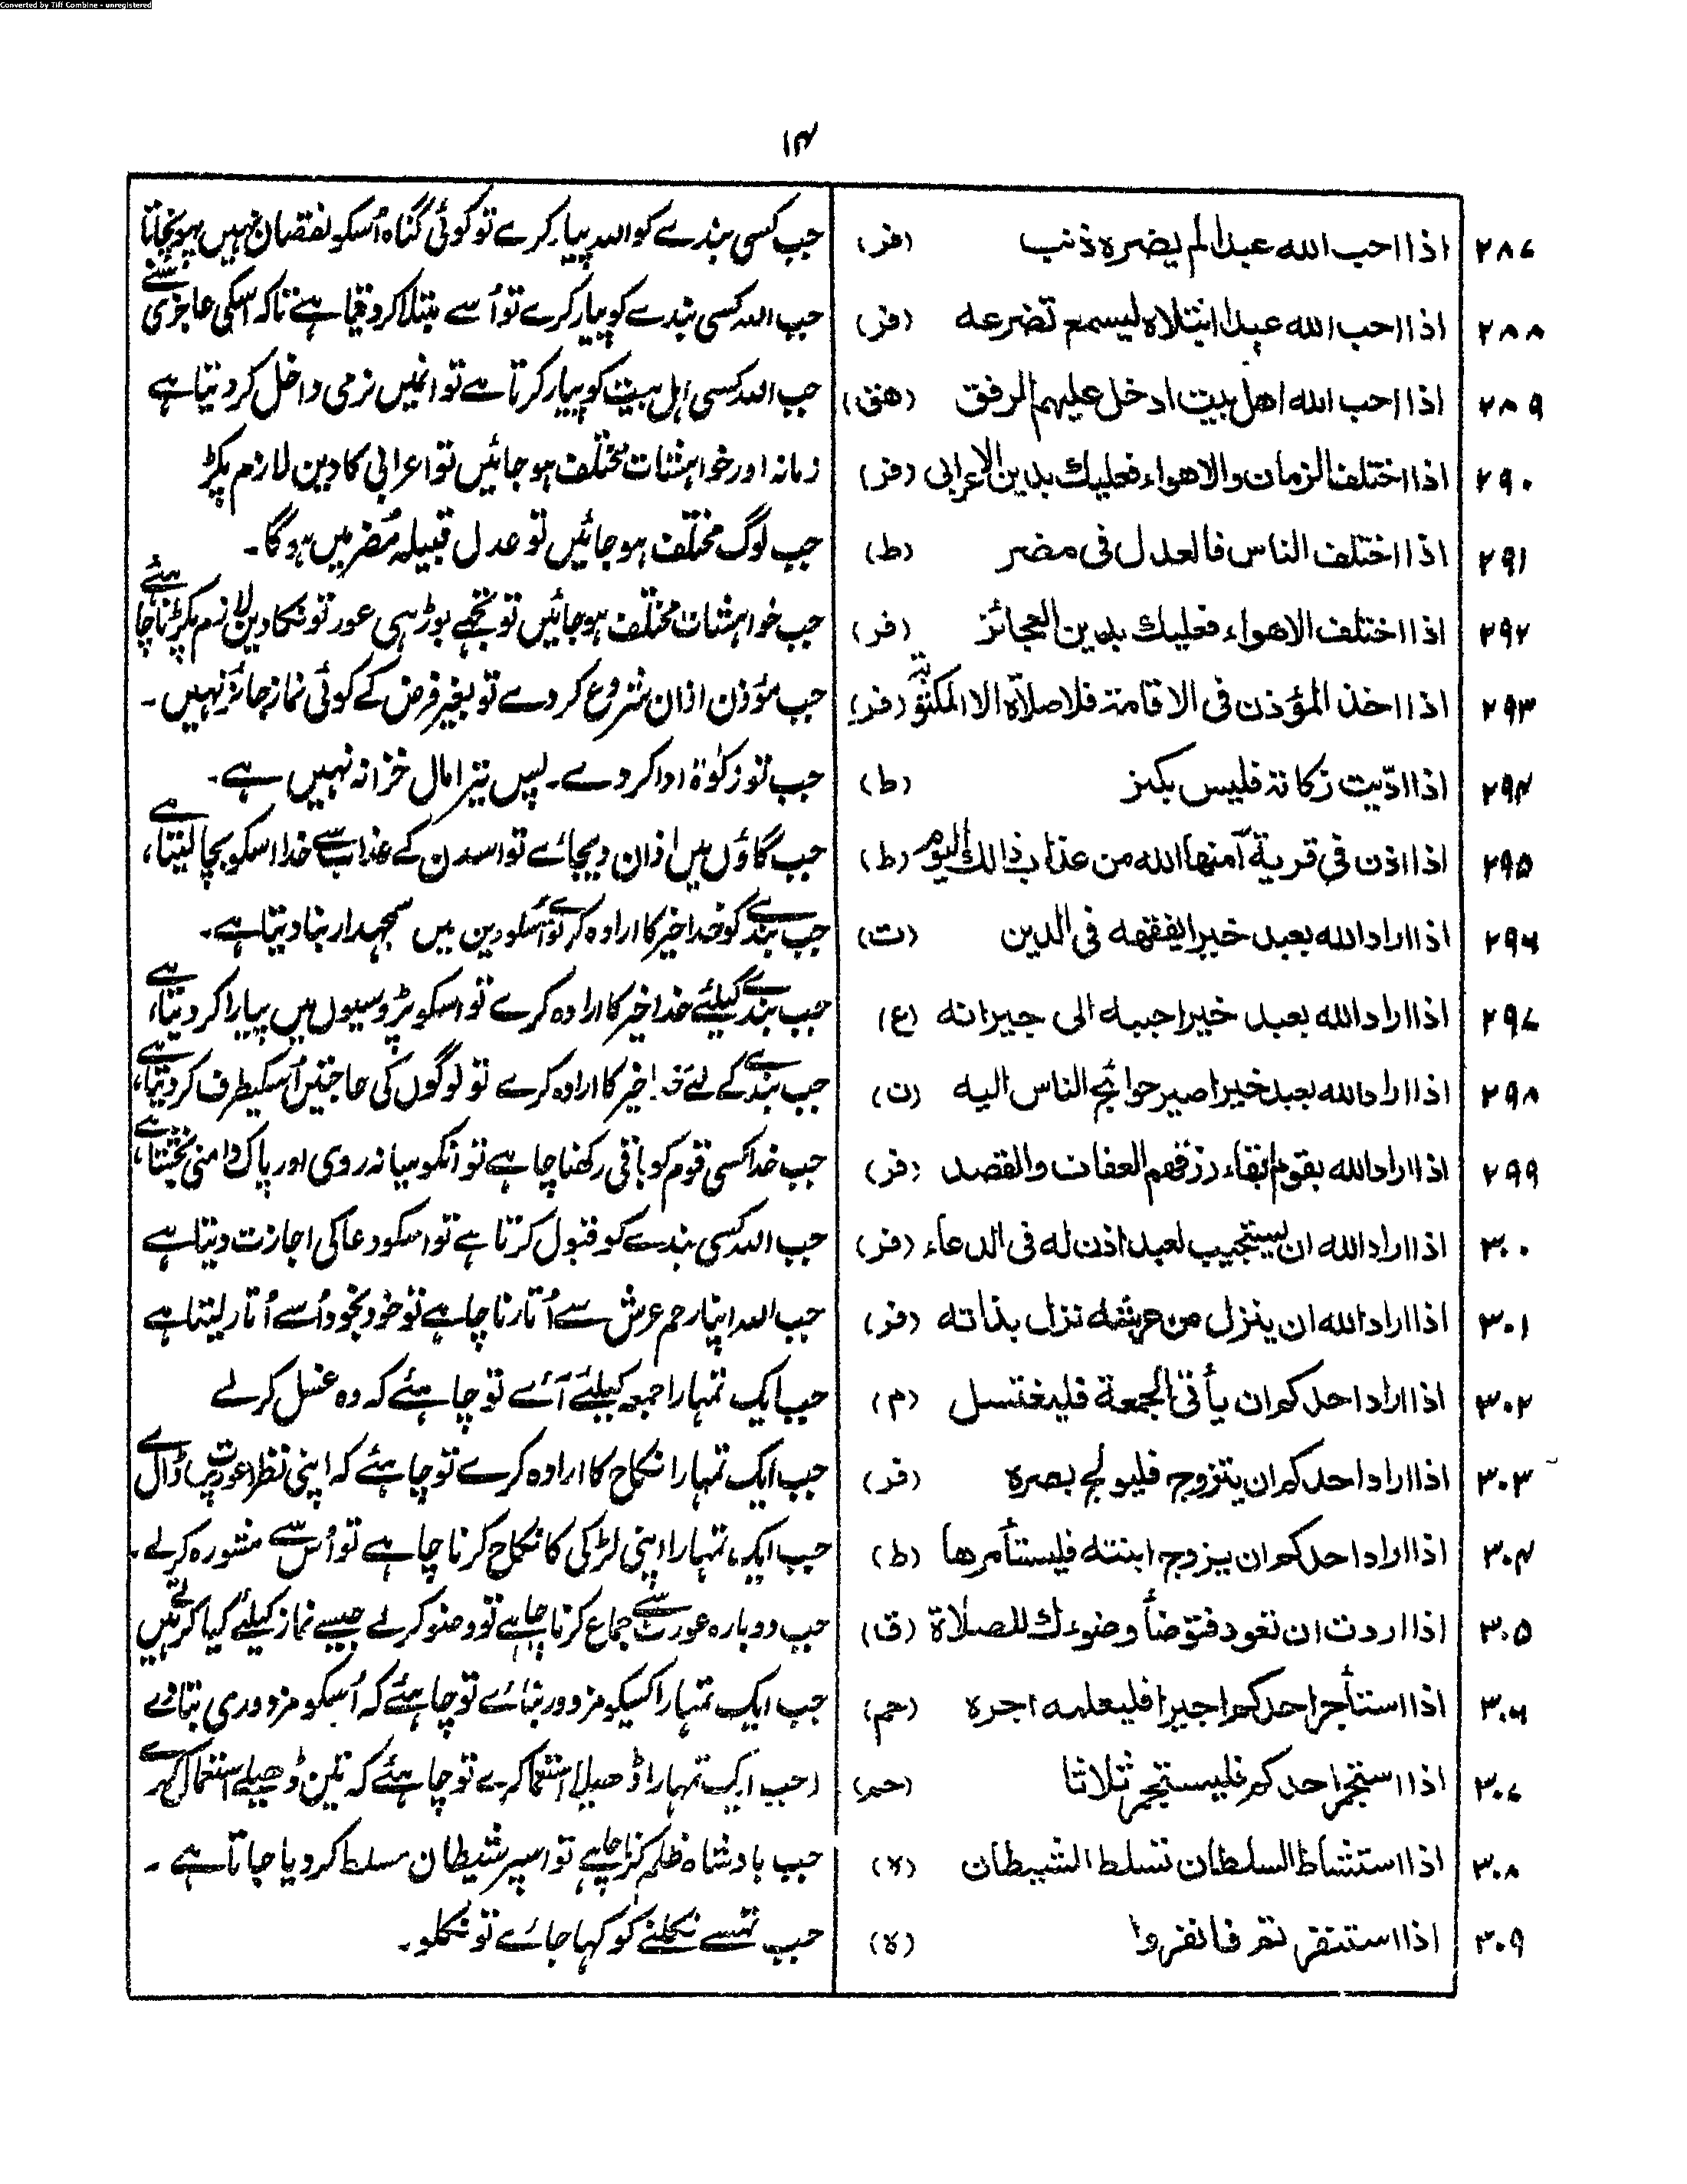 Converted by Tiff Combine - unregistered
۱۴
۲۸۷ اذا احب الله عبدا لم يضره ذنب (فر) جب کسی بندے کو اللہ پیار کرے تو کوئی گناہ اُسکو نقصان نہیں پہونچاتا
۲۸۸ اذا احب الله عبدا ابتلاه ليسمع تضرعه (فر) جب اللہ کسی بندے کو پیار کرے تو اُسے مبتلا کردیتا ہے تاکہ اسکی عاجزی سنے
۲۸۹ اذا احب الله اهل بيت ادخل عليهم الرفق (هق) جب اللہ کسی اہل بیت کو پیار کرتا ہے تو انمیں نرمی داخل کر دیتا ہے
۲۹۰ اذا اختلف الزمان والاهواء فعليك بدين الاعرابى (فر) زمانہ اور خواہشات مختلف ہو جائیں تو اعرابی کا دین لازم پکڑ
۲۹۱ اذا اختلف الناس فالعدل فى مضر (ط) جب لوگ مختلف ہو جائیں تو عدل قبیلہ مُضر میں ہوگا۔
۲۹۲ اذا اختلف الاهواء فعليك بدين العجائز (فر) جب خواہشات مختلف ہو جائیں تو تجھے بوڑہی عورتونکا دین لازم پکڑنا چاہئے
۲۹۳ اذا اخذ المؤذن فى الاقامة فلا صلاة الا المكتوبة (فر) جب مؤذن اذان شروع کر دے تو بغیر فرض کے کوئی نماز جائز نہیں۔
۲۹۴ اذا ادّيت زكاته فليس بكنز (ط) جب تو زکوٰۃ ادا کر دے۔ پس تیرا مال خزانہ نہیں ہے۔
۲۹۵ اذا اذن فى قرية آمنها الله من عذاب ذالك اليوم (ط) جب گاؤں میں اذان دیجائے تو اسدن کے عذاب سے خدا اسکو بچا لیتا ہے،
۲۹۶ اذا اراد الله بعبد خيرا يفقهه فى الدين (ت) جب بندے کو خدا خیر کا ارادہ کرے تو اُسکو دین میں سمجہدار بنا دیتا ہے۔
۲۹۷ اذا اراد الله بعبد خيرا حببه الى جيرانه (ع) جب بندے کیلئے خدا خیر کا ارادہ کرے تو اسکو پڑوسیوں میں پیارا کر دیتا ہے،
۲۹۸ اذا اراد الله بعبد خيرا صير حوائج الناس اليه (ن) جب بندے کے لئے خدا خیر کا ارادہ کرے تو لوگوں کی حاجتیں اُسکیطرف کر دیتا ہے،
۲۹۹ اذا اراد الله بقوم ابقاء رزقهم العفاف والقصد (فر) جب خدا کسی قوم کو باقی رکھنا چاہے تو انکو میانہ روی اور پاک دامنی بخشتا ہے،
۳۰۰ اذا اراد الله ان يستجيب لعبد اذن له فى الدعاء (فر) جب اللہ کسی بندے کو قبول کرتا ہے تو اسکو دعا کی اجازت دیتا ہے
۳۰۱ اذا اراد الله ان ينزل من عرشه نزل بذاته (فر) جب اللہ اپنا رحم عرش سے اُتارنا چاہے تو خود بخود اُسے اُتار لیتا ہے
۳۰۲ اذا اراد احدكم ان يأتى الجمعة فليغتسل (م) جب ایک تمہارا جمعہ کیلئے آئے تو چاہئے کہ وہ غسل کر لے
۳۰۳ اذا اراد احدكم ان يتزوج فليولج بصره (فر) جب ایک تمہارا نکاح کا ارادہ کرے تو چاہئے کہ اپنی نظر عورت پر ڈال لے
۳۰۴ اذا اراد احدكم ان يزوج ابنته فليستأمرها (ط) جب ایک تمہارا اپنی لڑکی کا نکاح کرنا چاہے تو اُس سے مشورہ کر لے۔
۳۰۵ اذا اردت ان تعود فتوضأ وضوءك للصلاة (ق) جب دوبارہ عورت سے جماع کرنا چاہے تو وضو کرلے جیسے نماز کیلئے کیا کرتے ہیں
۳۰۶ اذا استأجر احدكم اجيرا فليعلمه اجره (حم) جب ایک تمہارا کسیکو مزدور بنائے تو چاہئے کہ اُسکو مزدوری بتا دے
۳۰۷ اذا استجمر احدكم فليستجمر ثلاثا (حم) جب ایک تمہارا ڈھیلا استعمال کرے تو چاہئے کہ تین ڈھیلے استعمال کرے
۳۰۸ اذا استشاط السلطان تسلط الشيطان (لا) جب بادشاہ ظلم کرنا چاہے تو اسپر شیطان مسلط کر دیا جاتا ہے۔
۳۰۹ اذا استنفرتم فانفروا (ه) جب تمسے نکلنے کو کہا جائے تو نکلو۔